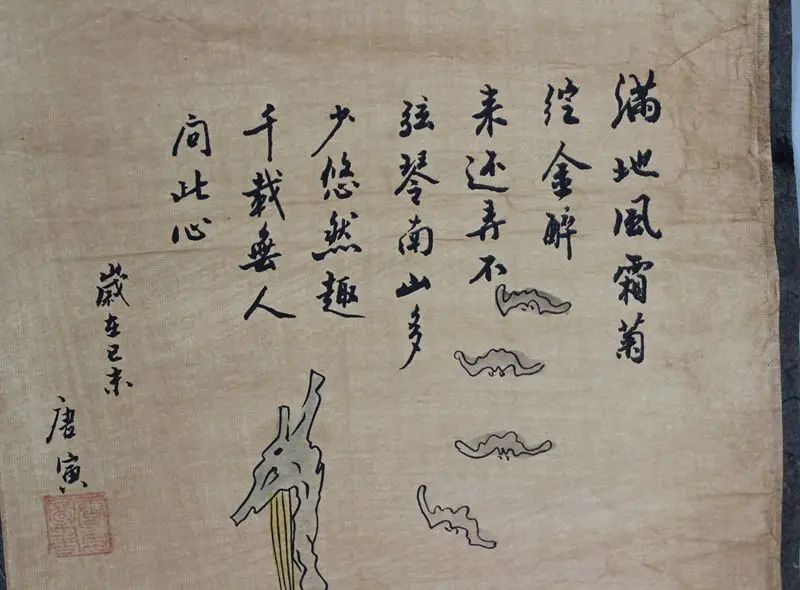 满地风霜菊
绽金醉
来还弄不
弦琴南山多
少悠然趣
千载無人
问此心
歳在己未
唐寅